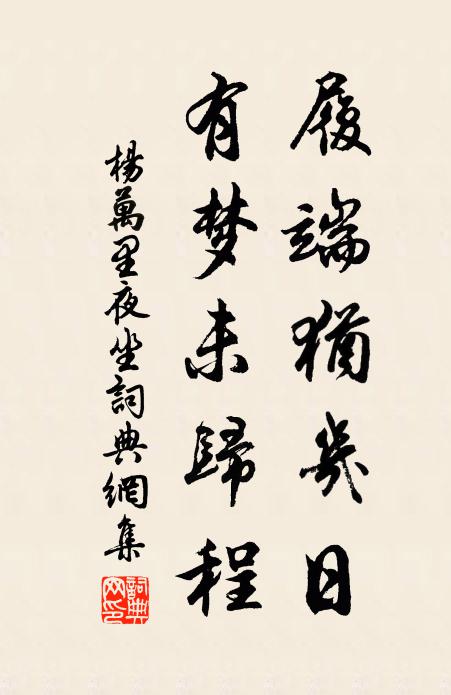 履端猶幾日
有梦未歸程
楊萬里夜坐詞典網集
詞典網印